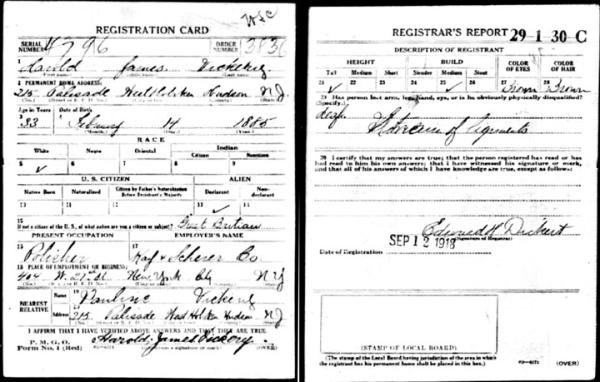 REGISTRATION CARD
SERIAL NUMBER 4796 ORDER NUMBER 3836
1 Harold James Vickery
2 PERMANENT HOME ADDRESS:
215 Palisade West Hoboken Hudson N.J.
Age in Years Date of Birth
33 February 14 1885
RACE
White Negro Oriental Indian
Citizen Noncitizen
5 ✓
U. S. CITIZEN ALIEN
Native Born Naturalized Citizen by Father's Naturalization Before Registrant's Majority Declarant Non-declarant
10 11 12 13 ✓ 14
15 If not a citizen of the U.S., of what nation are you a citizen or subject? Great Britain
PRESENT OCCUPATION EMPLOYER'S NAME
16 Polisher 17 & Scherer Co
18 PLACE OF EMPLOYMENT OR BUSINESS:
404 W. 27 St New York City N Y
NEAREST RELATIVE Name 19 Pauline Vickery
Address 20 215 Palisade West Hoboken Hudson N J
I AFFIRM THAT I HAVE VERIFIED ABOVE ANSWERS AND THAT THEY ARE TRUE
P. M. G. O.
Form No. 1 (Red) Harold James Vickery (OVER)
REGISTRAR'S REPORT 29-1-30-C
DESCRIPTION OF REGISTRANT
HEIGHT BUILD COLOR OF EYES COLOR OF HAIR
Tall Medium Short Slender Medium Stout
21 ✓ 22 23 24 25 ✓ 26 27 Brown 28 Brown
29 Has person lost arm, leg, hand, eye, or is he obviously physically disqualified?
(Specify.)
of ligaments
30 I certify that my answers are true; that the person registered has read or has
had read to him his own answers; that I have witnessed his signature or mark,
and that all of his answers of which I have knowledge are true, except as follows:
Edward Dickert
(Signature of Registrar)
Date of Registration SEP 12 1918
(STAMP OF LOCAL BOARD)
(The stamp of the Local Board having jurisdiction of the area in which
the registrant has his permanent home shall be placed in this box.)
(OVER)